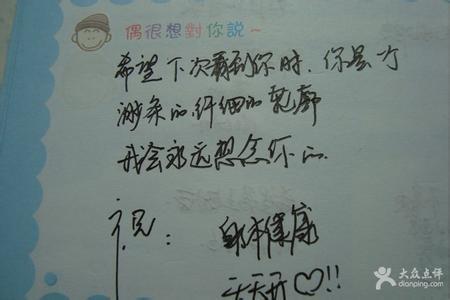 偶很想對你說~
希望下次到你时. 你是个
条的.纤细的轮廓
我会永远想念你的.
祝: 身体健康
天天开♡!!
大众点评
dianping.com